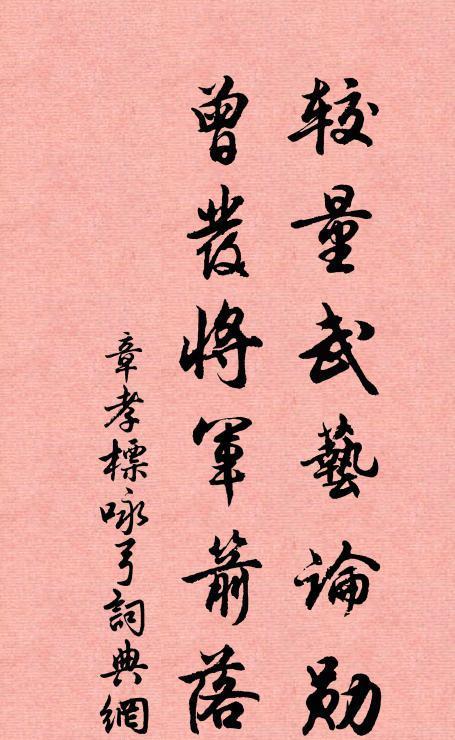 较量武藝論勛
曾發將軍箭落
章孝標咏弓詞典網